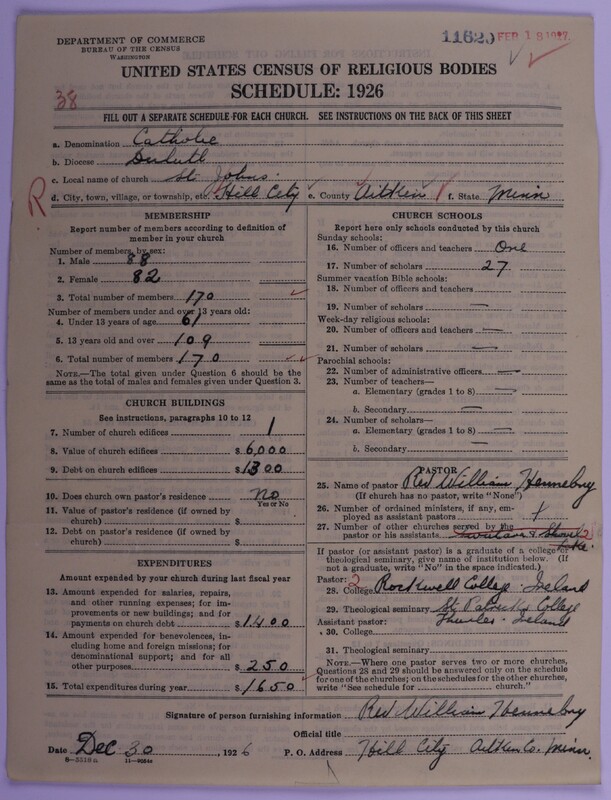 DEPARTMENT OF COMMERCE
BUREAU OF THE CENSUS
WASHINGTON
11620 FEB 18 1927
UNITED STATES CENSUS OF RELIGIOUS BODIES
SCHEDULE: 1926
38
FILL OUT A SEPARATE SCHEDULE FOR EACH CHURCH. SEE INSTRUCTIONS ON THE BACK OF THIS SHEET
a. Denomination Catholic
b. Diocese Duluth
c. Local name of church St Johns
R
d. City, town, village, or township, etc. Hill City e. County Aitken f. State Minn
MEMBERSHIP
Report number of members according to definition of member in your church
Number of members by sex:
1. Male 88
2. Female 82
3. Total number of members 170
Number of members under and over 13 years old:
4. Under 13 years of age 61
5. 13 years old and over 109
6. Total number of members 170
NOTE.—The total given under Question 6 should be the same as the total of males and females given under Question 3.
CHURCH BUILDINGS
See instructions, paragraphs 10 to 12
7. Number of church edifices 1
8. Value of church edifices $ 6,000
9. Debt on church edifices $ 1300
10. Does church own pastor's residence No
Yes or No
11. Value of pastor's residence (if owned by church) $
12. Debt on pastor's residence (if owned by church) $
EXPENDITURES
Amount expended by your church during last fiscal year
13. Amount expended for salaries, repairs, and other running expenses; for improvements or new buildings; and for payments on church debt $ 1400
14. Amount expended for benevolences, including home and foreign missions; for denominational support; and for all other purposes $ 250
15. Total expenditures during year $ 1650
CHURCH SCHOOLS
Report here only schools conducted by this church
Sunday schools:
16. Number of officers and teachers One
17. Number of scholars 27
Summer vacation Bible schools:
18. Number of officers and teachers
19. Number of scholars —
Week-day religious schools:
20. Number of officers and teachers —
21. Number of scholars —
Parochial schools:
22. Number of administrative officers —
23. Number of teachers—
a. Elementary (grades 1 to 8) —
b. Secondary —
24. Number of scholars—
a. Elementary (grades 1 to 8) —
b. Secondary —
PASTOR
25. Name of pastor Rev William Hennebry
(If church has no pastor, write "None")
26. Number of ordained ministers, if any, employed as assistant pastors
27. Number of other churches served by the pastor or his assistants 2
Lake
If pastor (or assistant pastor) is a graduate of a college or theological seminary, give name of institution below. (If not a graduate, write "No" in the space indicated.)
Pastor: 2
28. College Rockwell College Ireland
29. Theological seminary St Patricks College
Assistant pastor: Thurles Ireland
30. College
31. Theological seminary
NOTE.—Where one pastor serves two or more churches, Questions 28 and 29 should be answered only on the schedule for one of the churches; on the schedules for the other churches, write "See schedule for church."
Signature of person furnishing information Rev William Hennebry
Official title
Date Dec 30, 1926 P. O. Address Hill City Aitken Co. Minn.
8-5518a 11-9084